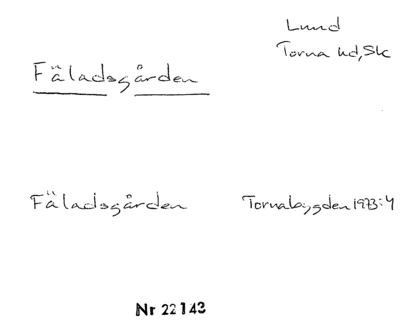 Lund
Torna hd, Sk
Fäladsgården
Fäladsgården Tornabygden 1973:4
Nr 22143